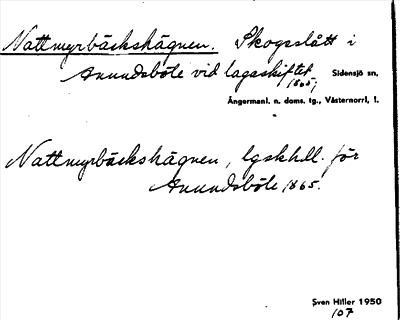 Nattmyrbäckshägnen. Skogsslått i
Anundsböle vid lagaskiftet
1865,
Sidensjö sn,
Ångermanl. n. doms. tg., Västernorrl. l.
Nattmyrbäckshägnen, lgskhdl. för
Anundsböle 1865.
Sven Hiller 1950
107